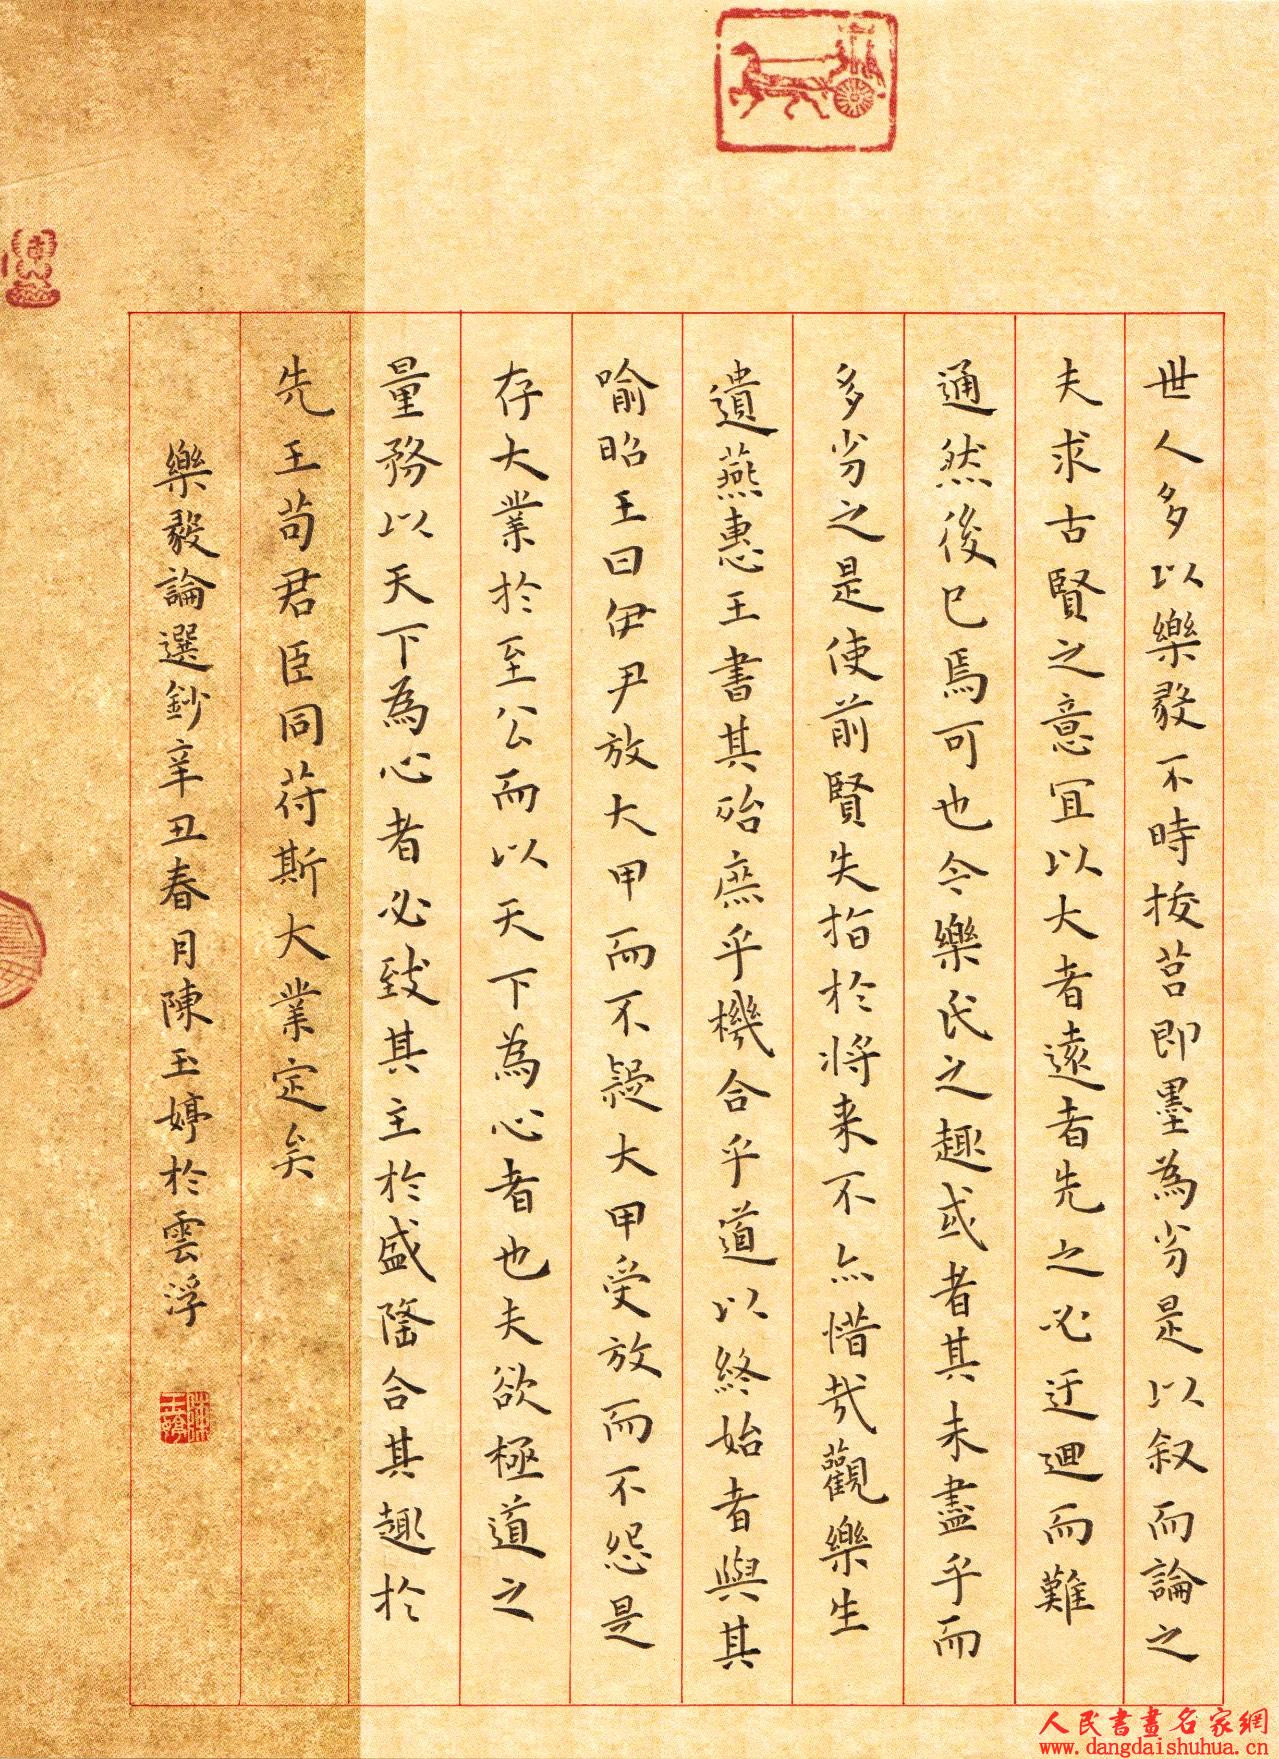 世人多以樂毅不時拔莒即墨為劣是以叙而論之
夫求古賢之意宜以大者遠者先之必迂迴而難
通然後已焉可也今樂氏之趣或者其未盡乎而
多劣之是使前賢失指於将来不亦惜哉觀樂生
遺燕惠王書其殆庶乎機合乎道以終始者與其
喻昭王曰伊尹放大甲而不疑大甲受放而不怨是
存大業於至公而以天下為心者也夫欲極道之
量務以天下為心者必致其主於盛隆合其趣於
先王苟君臣同苻斯大業定矣
樂毅論選鈔辛丑春月陳玉婷於雲浮
陳玉婷
人民書畫名家網
www.dangdaishuhua.cn